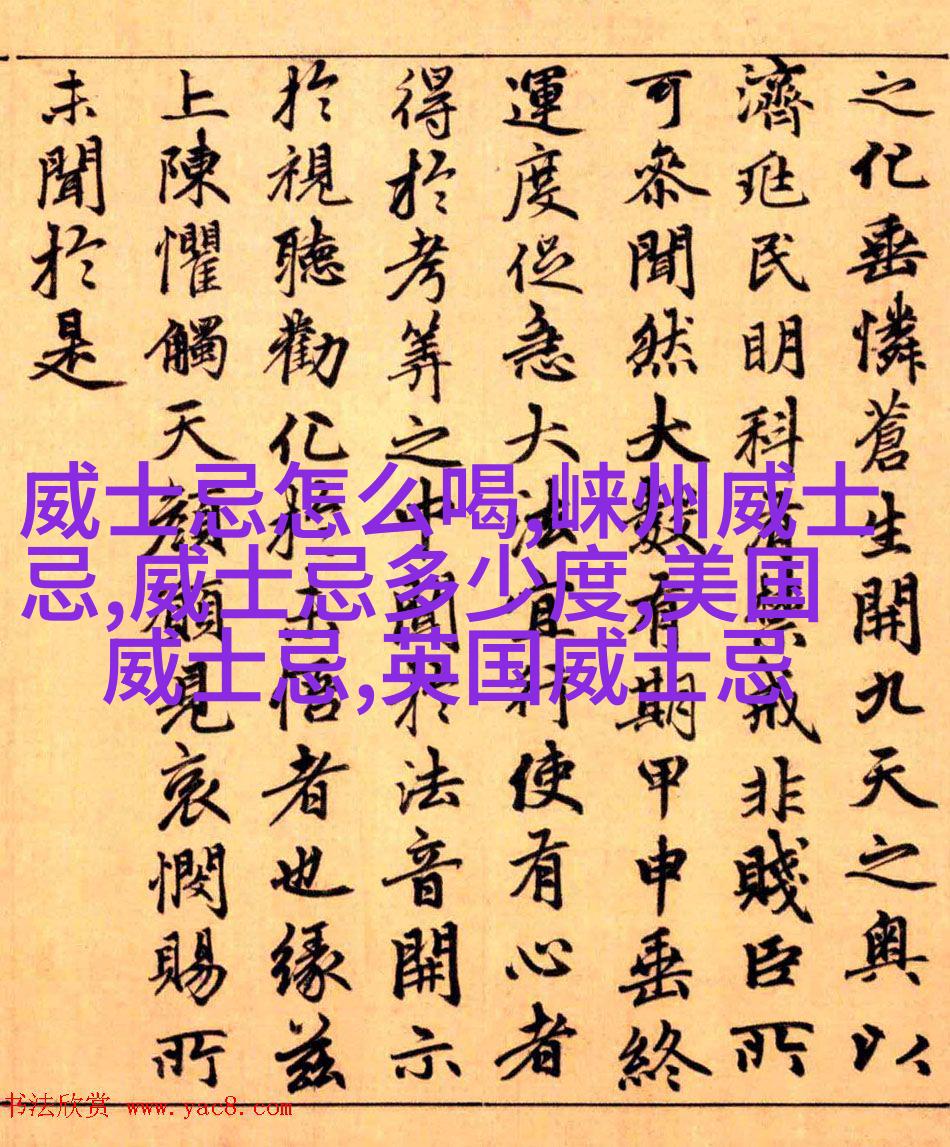 之化垂憐蒼生開九天之奧以
濟兆民明科戒非賤臣所
可參聞然大數有期甲申垂終
運度促急大法宜行使有心者
得於考筭之中聞於法音開示
於視聽勸化於未悟者也緣茲
上陳懼觸天顏願見哀憫賜所
未聞於是
威士忌怎么喝,崃州威士
忌,威士忌多少度,美国
威士忌,英国威士忌
书法欣赏 www.yac8.com